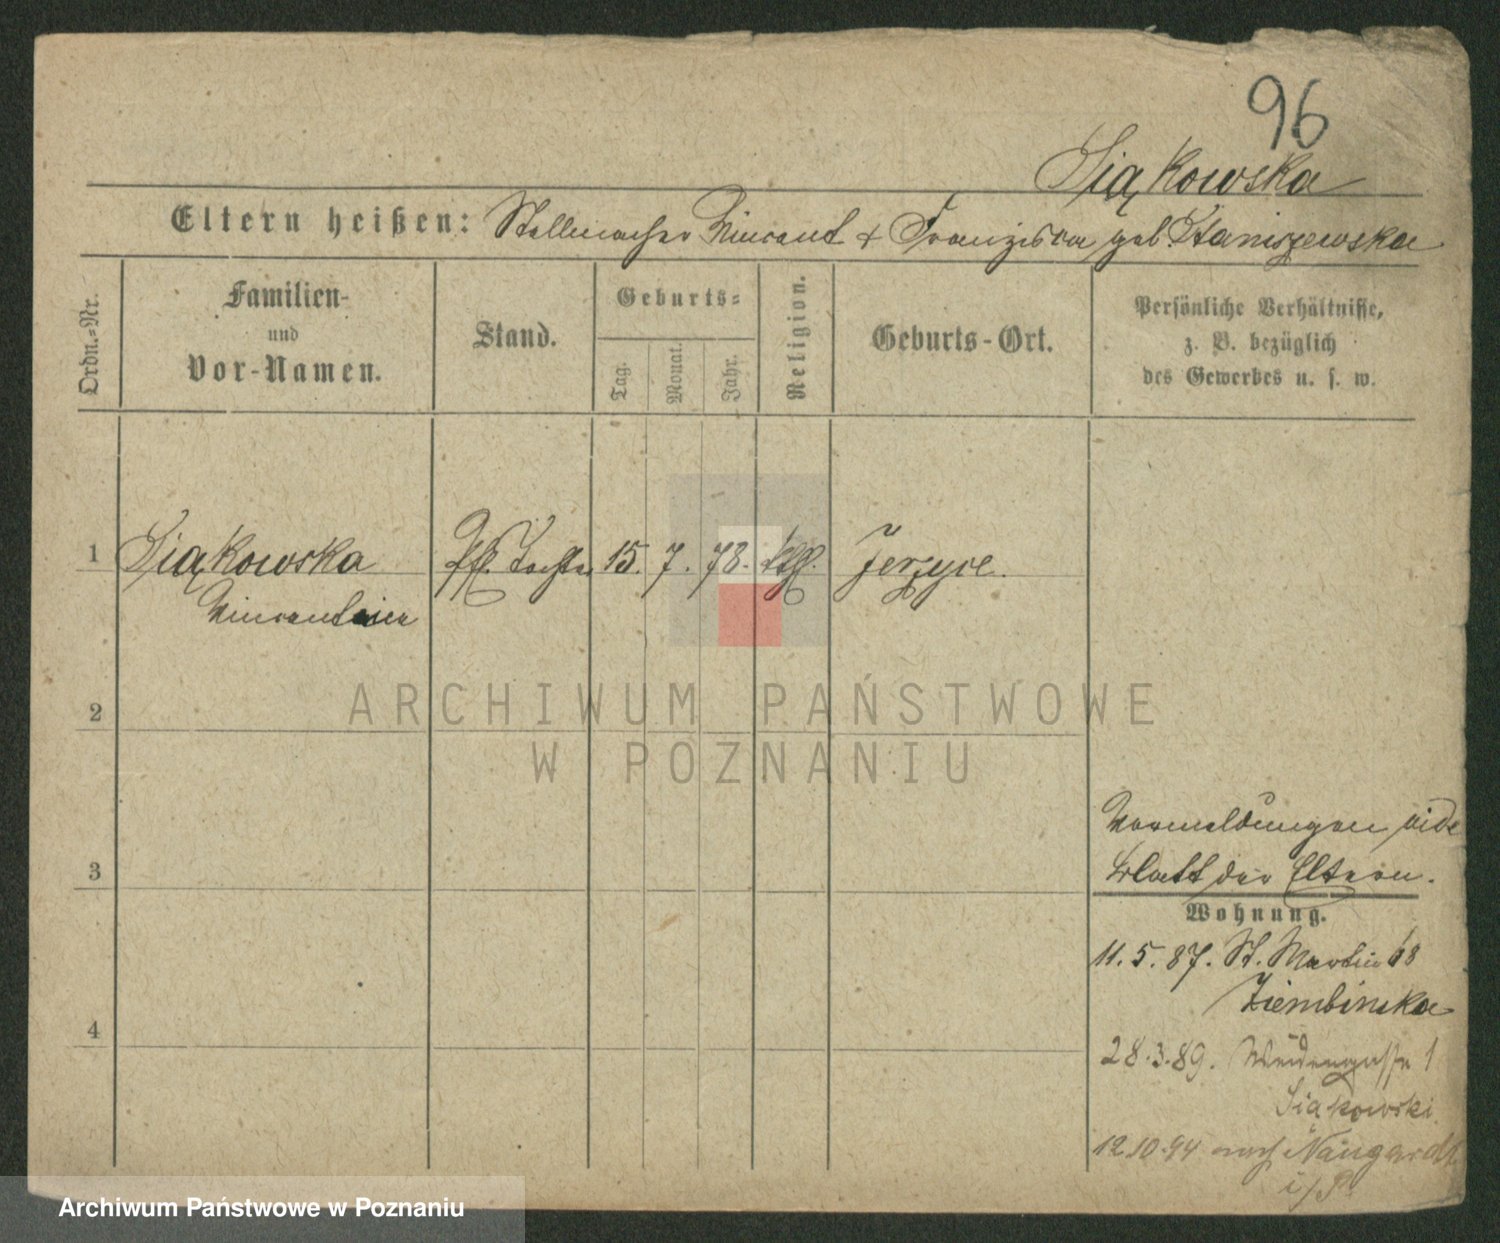 96
Siąkowska
Eltern heißen: Stellmacher Vincent & Franziska geb. Staniszewska
Ordn.-Nr.
Familien-
und
Vor-Namen.
Stand.
Geburts-
Tag.
Monat.
Jahr.
Religion.
Geburts-Ort.
Persönliche Verhältnisse,
z. B. bezüglich
des Gewerbes u. s. w.
1 Siąkowska Tochter 15. 7. 78. kth. Jerzyce.
Vincentine
2
ARCHIWUM PAŃSTWOWE
W POZNANIU
3
Vormeldungen vide
Blatt der Eltern.
Wohnung.
11.5.87. St. Martin 68
Ziembinska
4
28.3.89. Weidengasse 1
Siąkowski
12.10.94 nach Naugardt
i/P.
Archiwum Państwowe w Poznaniu